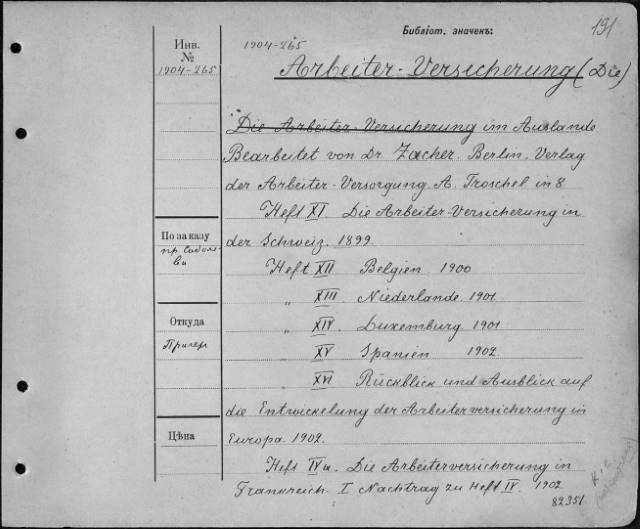 Библiот. значекъ:
191
Инв.
№
1904-265
1904-265
Arbeiter-Versicherung (Die)
Die Arbeiter-Versicherung im Auslande
Bearbeitet von Dr Zacher. Berlin. Verlag
der Arbeiter-Versorgung. A. Troschel in 8
Heft XI. Die Arbeiter-Versicherung in
По заказу
der Schweiz. 1899.
пр.
Heft XII Belgien 1900
„ XIII Niederlande. 1901.
Откуда
„ XIV. Luxemburg. 1901.
XV Spanien 1902.
XVI Rückblick und Ausblick auf
die Entwickelung der Arbeiterversicherung in
Цѣна
Europa. 1902.
Heft IVa. Die Arbeiterversicherung in
Frankreich. I Nachtrag zu Heft IV. 1902
82351